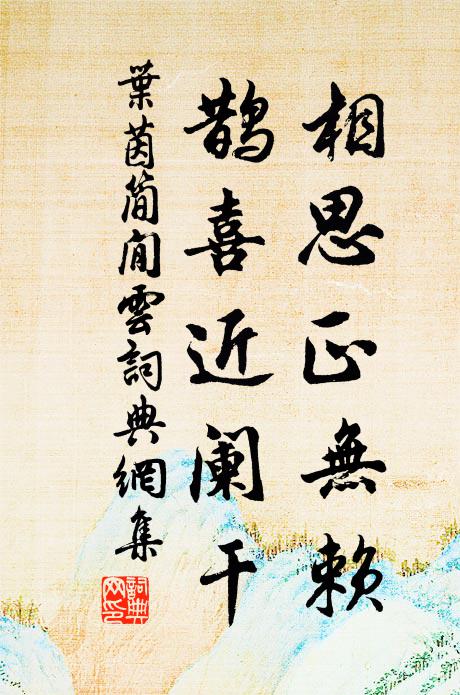 相思正無賴
鹊喜近阑干
葉茵簡閒雲詞典網集
詞典